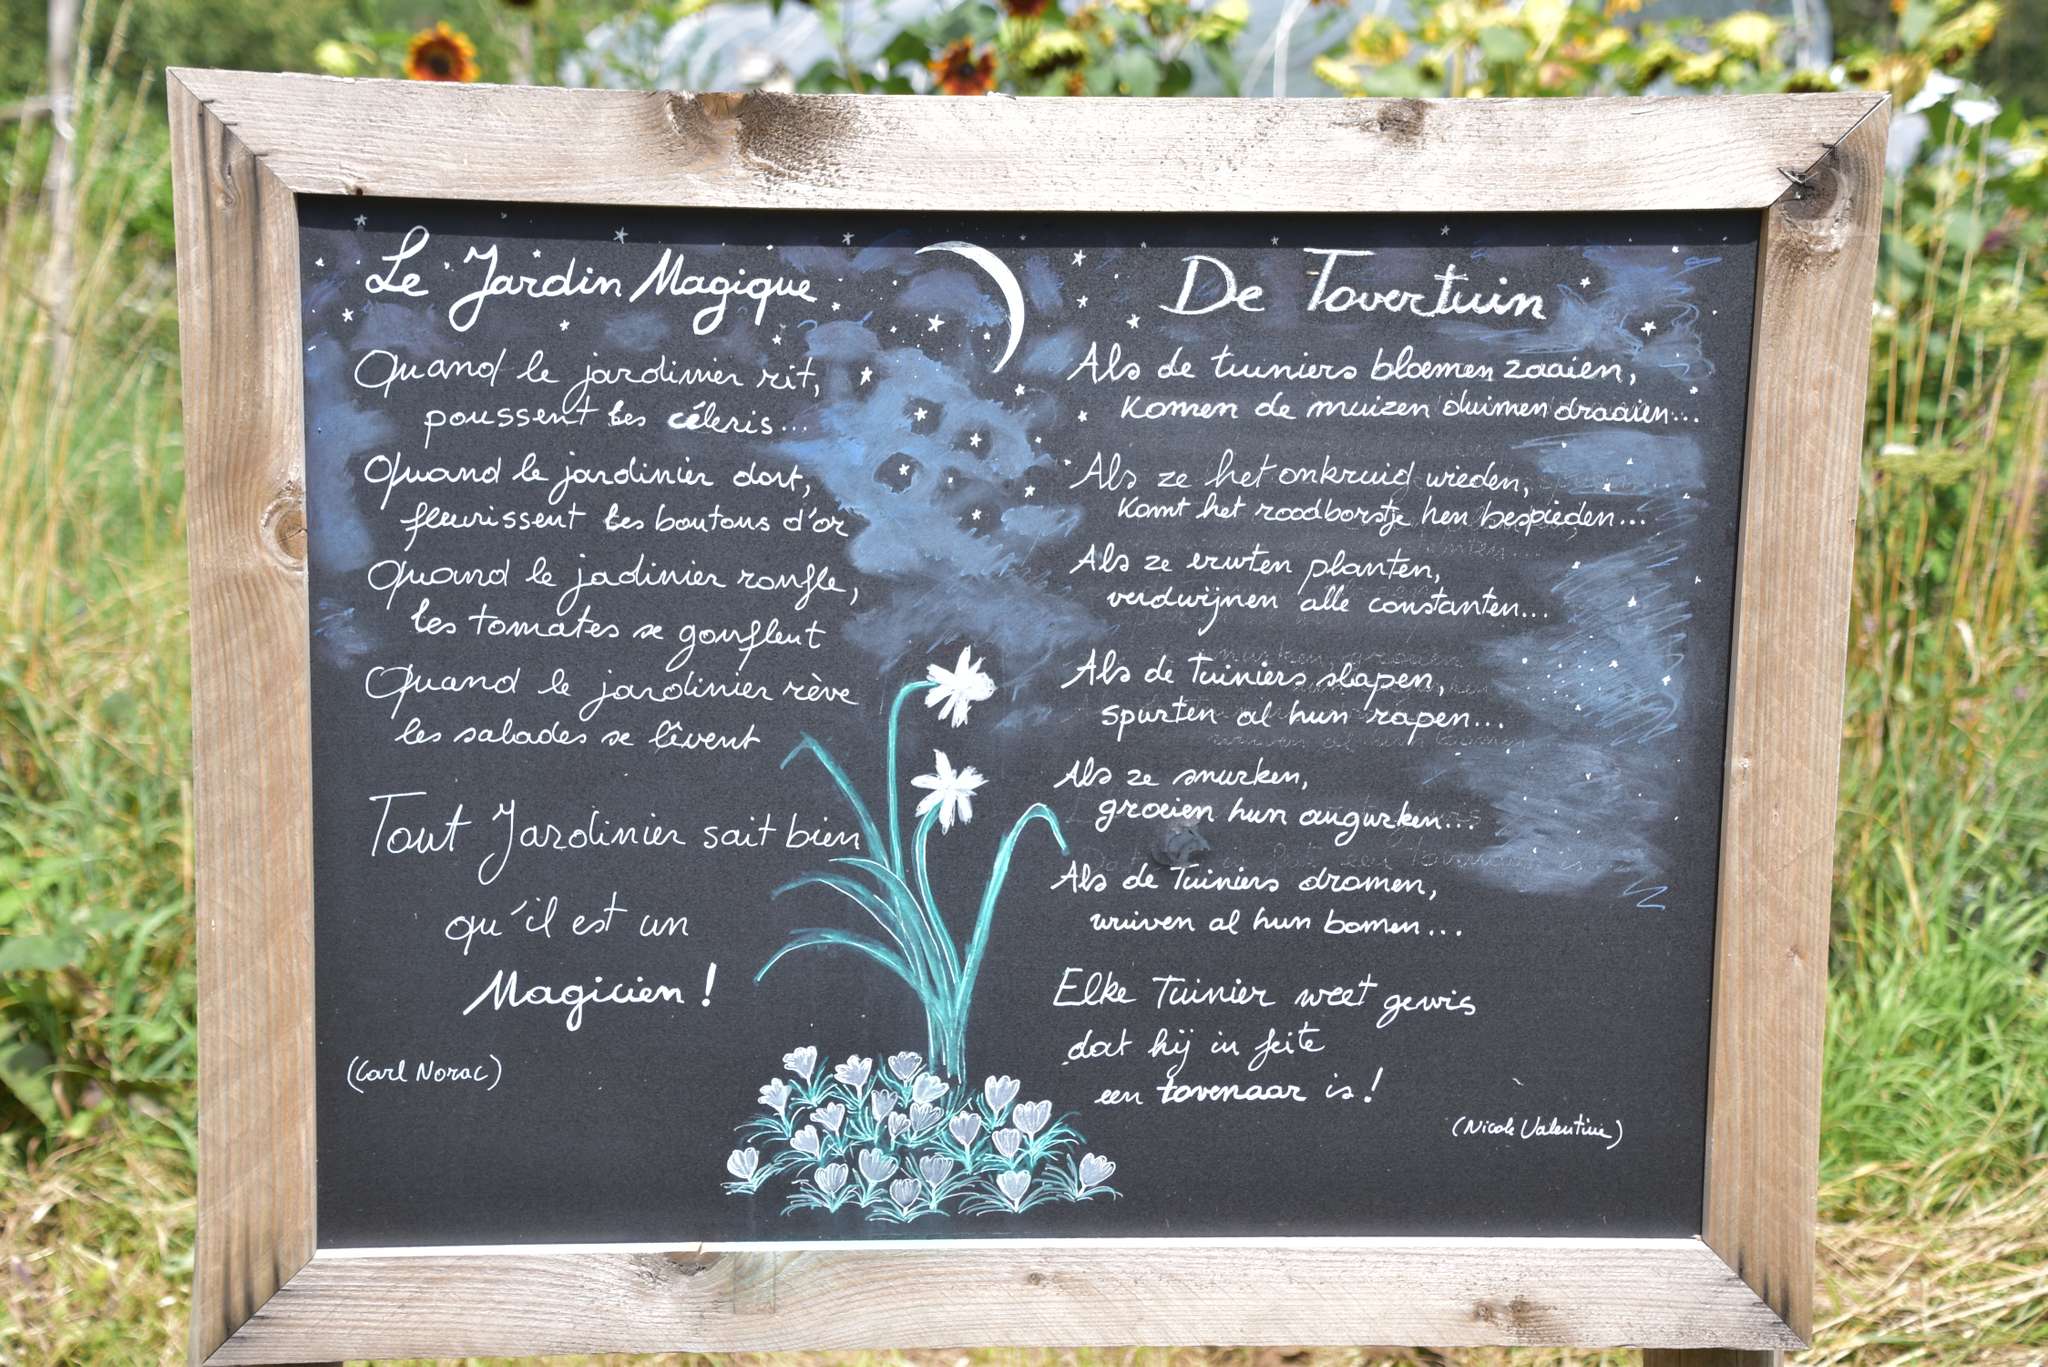 Le Jardin Magique
Quand le jardinier rit,
poussent les céleris...
Quand le jardinier dort,
fleurissent les boutons d'or
Quand le jadinier ronfle,
les tomates se gonflent
Quand le jardinier rève
les salades se lèvent
Tout Jardinier sait bien
qu'il est un
Magicien !
(Carl Norac)
De Tovertuin
Als de tuiniers bloemen zaaien,
komen de muizen duimen draaien...
Als ze het onkruid wieden,
komt het roodborstje hen bespieden...
Als ze erwten planten,
verdwijnen alle constanten...
Als de Tuiniers slapen,
spurten al hun rapen...
Als ze snurken,
groeien hun augurken...
Als de Tuiniers dromen,
wuiven al hun bomen...
Elke Tuinier weet gewis
dat hij in feite
een tovenaar is !
(Nicole Valentine)